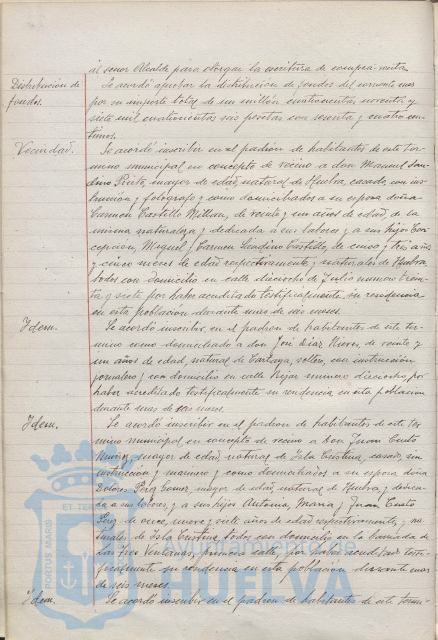 al señor Alcalde para otorgar la escritura de compra-venta.
Distribución de fondos.
Se acordó aprobar la distribución de fondos del corriente mes
por su importe total de un millón cuatrocientas noventa y
siete mil cuatrocientas seis pesetas con sesenta y cuatro cén-
timos.
Vecindad.
Se acordó inscribir en el padrón de habitantes de este tér-
mino municipal en concepto de vecino a don Manuel San-
dino Prieto, mayor de edad, natural de Huelva, casado, con ins-
trucción y fotógrafo y como domiciliados a su esposa doña
Carmen Castillo Millán, de veinte y un años de edad, de la
misma naturaleza y dedicada a sus labores y a sus hijos Con-
cepción, Miguel y Carmen Sandino Castillo, de cinco y tres años
y cinco meses de edad respectivamente, naturales de Huelva
todos con domicilio en calle dieciocho de Julio número trein-
ta y siete por haber acreditado testificalmente su residencia
en esta población durante mas de seis meses.
Idem.
Se acordó inscribir en el padron de habitantes de este tér-
mino como domiciliado a don José Díaz de veinte y
un años de edad, natural de Cartaya, soltero, con instrucción
jornalero y con domicilio en calle Béjar número dieciocho, por
haber acreditado testificalmente su residencia en esta población
durante mas de seis meses.
Idem.
Se acordó inscribir en el padron de habitantes de este tér-
mino municipal en concepto de vecino a don Juan Cuesto
Muñiz, mayor de edad, natural de Isla Cristina, casado, sin
instrucción y marinero y como domiciliados a su esposa doña
Dolores Pérez Gomez, mayor de edad, natural de Huelva y dedica-
da a sus labores, y a sus hijos Antonia, Maria y Juan Cuesto
Pérez de once, nueve y siete años de edad respectivamente, na-
turales de Isla Cristina, todos con domicilio en la barriada de
las tres Ventanas, primera calle, por haber acreditado testi-
ficalmente su residencia en esta población durante mas
de seis meses.
Idem.
Se acordó inscribir en el padron de habitantes de este térmi-
PORTUS MARIS
ET TER
HUELVA